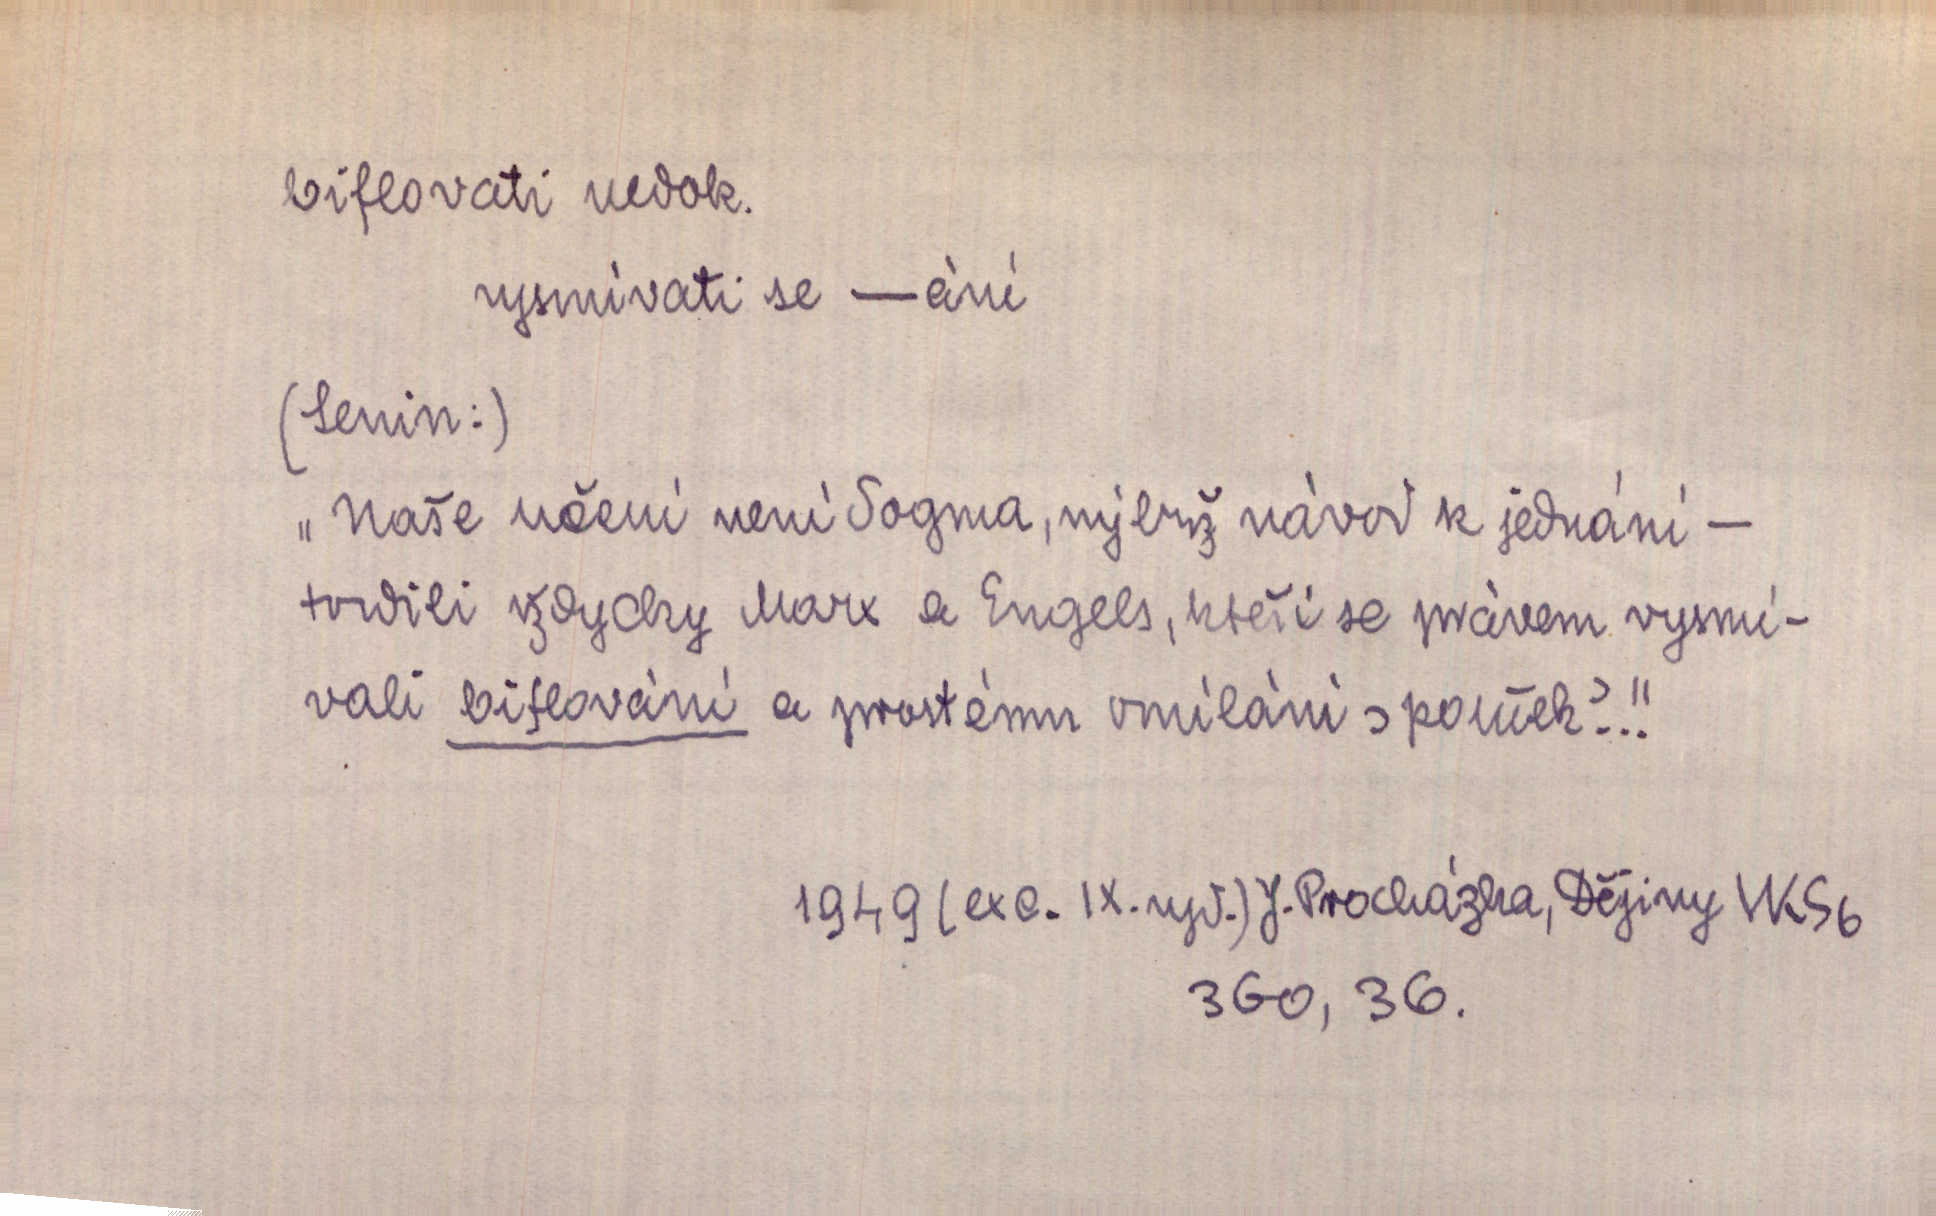 biflovati nedok.
vysmívati se —ání
(Lenin:)
„Naše učení není dogma, nýbrž návod k jednání —
tvrdili vždycky Marx a Engels, kteří se právem vysmí-
vali biflování a prostému omílání &gt;pouček&lt;..."
1949 (exc. IX. vyd.) J. Procházka, Dějiny VKSb
360, 36.